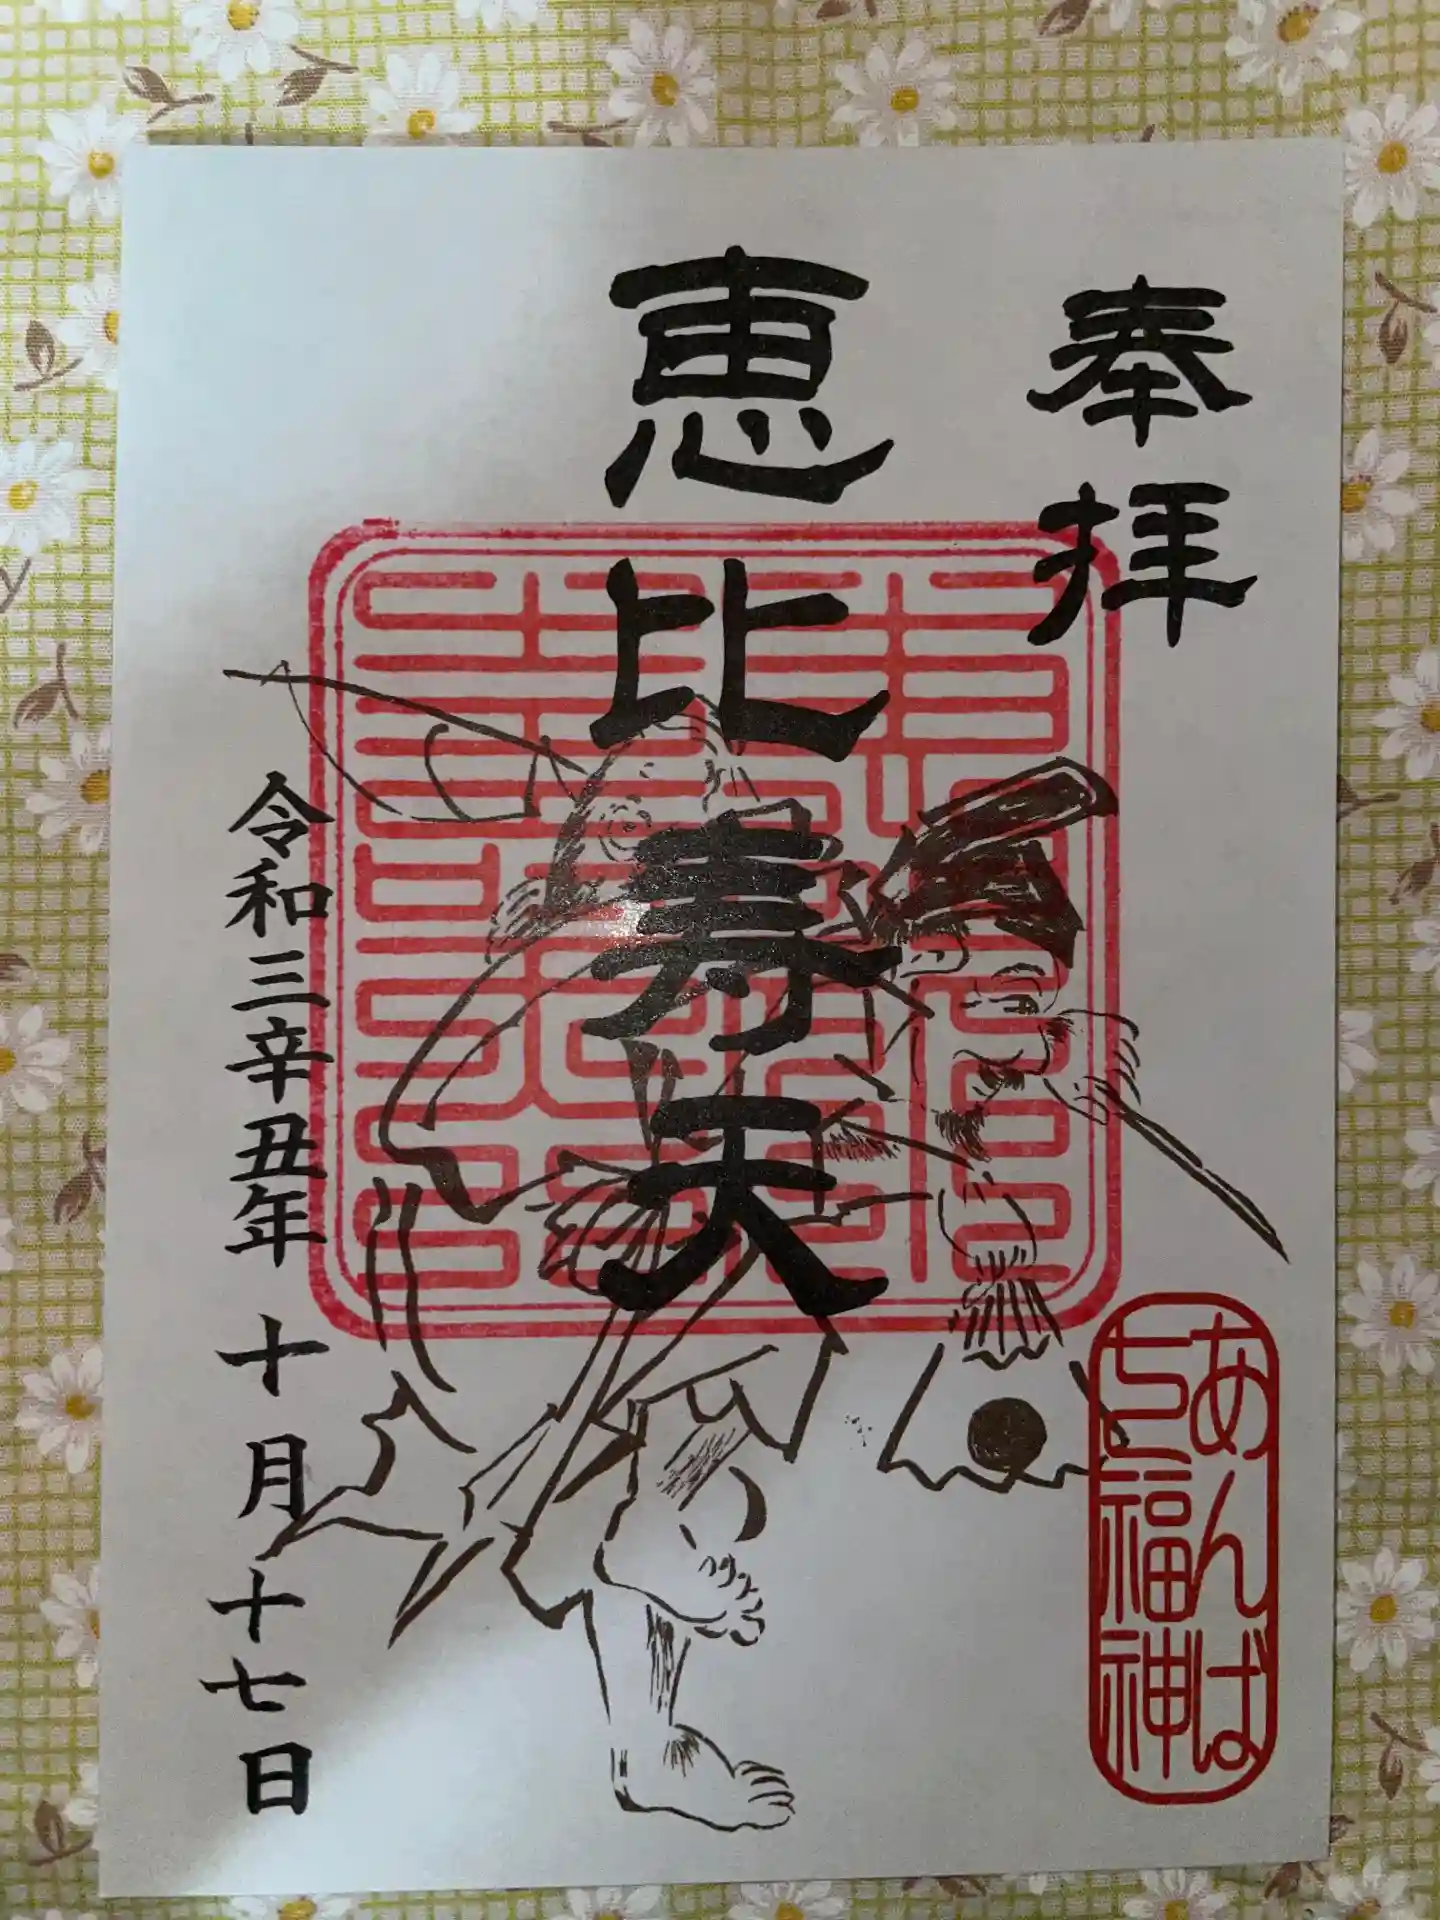 奉拝
恵比寿天
令和三辛丑年 十月十七日
あんば
七福神